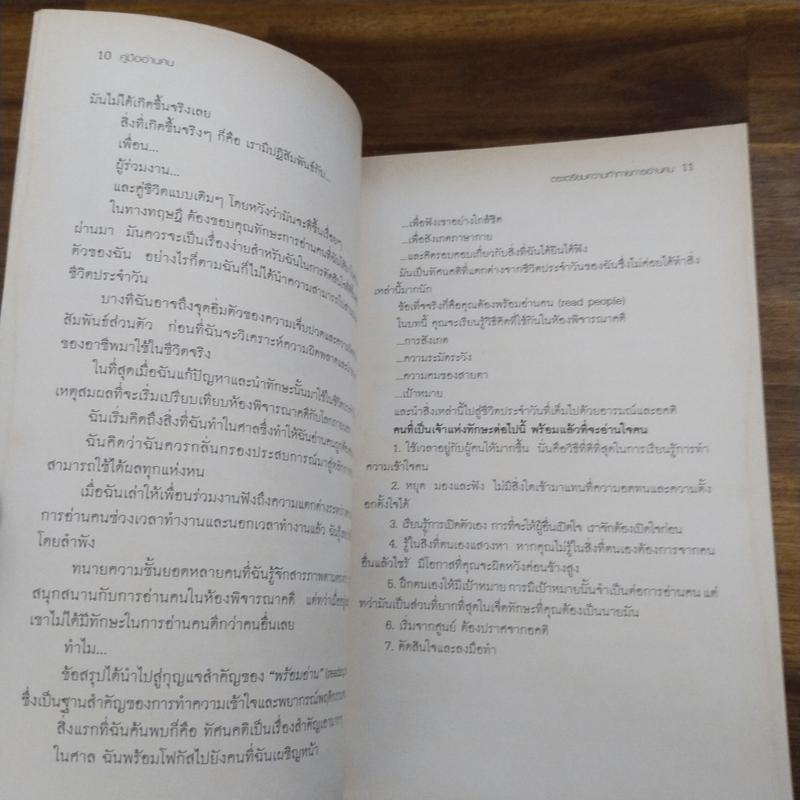 10 คู่มืออ่านคน
มันไม่ได้เกิดขึ้นจริงเลย
สิ่งที่เกิดขึ้นจริงๆ ก็คือ เรามีปฏิสัมพันธ์กับ...
เพื่อน...
ผู้ร่วมงาน...
และคู่ชีวิตแบบเดิมๆ โดยหวังว่ามันจะดีขึ้นเรื่อยๆ
ในทางทฤษฎี ต้องขอบคุณทักษะการอ่านคนที่ฉัน
ผ่านมา มันควรจะเป็นเรื่องง่ายสำหรับฉันในการตัดสินใจ
ตัวของฉัน อย่างไรก็ตามฉันก็ไม่ได้นำความสามารถ
ชีวิตประจำวัน
บางทีฉันอาจถึงจุดอิ่มตัวของความเจ็บปวดและ
สัมพันธ์ส่วนตัว ก่อนที่ฉันจะวิเคราะห์ความผิดพลาดและ
ของอาชีพมาใช้ในชีวิตจริง
ในที่สุดเมื่อฉันแก้ปัญหาและนำทักษะนั้นมาใช้ใน
เหตุสมผลที่จะเริ่มเปรียบเทียบห้องพิจารณาคดีกับโลกภายนอก
ฉันเริ่มคิดถึงสิ่งที่ฉันทำในศาลซึ่งทำให้ฉันอ่านคน
ฉันคิดว่าฉันควรกลั่นกรองประสบการณ์มาสู่หลักการ
สามารถใช้ได้ผลทุกแห่งหน
เมื่อฉันเล่าให้เพื่อนร่วมงานฟังถึงความแตกต่างระหว่าง
การอ่านคนช่วงเวลาทำงานและนอกเวลาทำงานแล้ว ฉันรู้
โดยลำพัง
ทนายความชั้นยอดหลายคนที่ฉันรู้จักสารภาพตามตรง
สนุกสนานกับการอ่านคนในห้องพิจารณาคดี แต่ทว่าเมื่อ
เขาไม่ได้มีทักษะในการอ่านคนดีกว่าคนอื่นเลย
ทำไม...
ข้อสรุปได้นำไปสู่กุญแจสำคัญของ "พร้อมอ่าน"
ซึ่งเป็นฐานสำคัญของการทำความเข้าใจและพยากรณ์พฤติกรรม
สิ่งแรกที่ฉันค้นพบก็คือ ทัศนคติเป็นเรื่องสำคัญ
ในศาล ฉันพร้อมโฟกัสไปยังคนที่ฉันเผชิญหน้า
ตระเตรียมความท้าทายการอ่านคน 11
...เพื่อฟังเขาอย่างใกล้ชิด
...เพื่อสังเกตภาษากาย
...และคิดรอบคอบเกี่ยวกับสิ่งที่ฉันได้ยินได้ฟัง
มันเป็นทัศนคติที่แตกต่างจากชีวิตประจำวันของฉันซึ่งไม่ค่อยได้ทำสิ่ง
เหล่านี้มากนัก
ข้อเท็จจริงก็คือคุณต้องพร้อมอ่านคน (read people)
ในบทนี้ คุณจะเรียนรู้วิธีคิดที่ใช้กันในห้องพิจารณาคดี
...การสังเกต
...ความระมัดระวัง
...ความคมของสายตา
...เป้าหมาย
และนำสิ่งเหล่านี้ไปสู่ชีวิตประจำวันที่เต็มไปด้วยอารมณ์และอคติ
คนที่เป็นเจ้าแห่งทักษะต่อไปนี้ พร้อมแล้วที่จะอ่านใจคน
1. ใช้เวลาอยู่กับผู้คนให้มากขึ้น นั่นคือวิธีที่ดีที่สุดในการเรียนรู้การทำ
ความเข้าใจคน
2. หยุด มองและฟัง ไม่มีสิ่งใดเข้ามาแทนที่ความอดทนและความตั้ง
อกตั้งใจได้
3. เรียนรู้การเปิดตัวเอง การที่จะให้ผู้อื่นเปิดใจ เราจักต้องเปิดใจก่อน
4. รู้ในสิ่งที่ตนเองแสวงหา หากคุณไม่รู้ในสิ่งที่ตนเองต้องการจากคน
อื่นแล้วไซร้ มีโอกาสที่คุณจะผิดหวังค่อนข้างสูง
5. ฝึกตนเองให้มีเป้าหมาย การมีเป้าหมายนั้นจำเป็นต่อการอ่านคน แต่
ทว่ามันเป็นส่วนที่ยากที่สุดในเจ็ดทักษะที่คุณต้องเป็นนายมัน
6. เริ่มจากศูนย์ ต้องปราศจากอคติ
7. ตัดสินใจและลงมือทำ